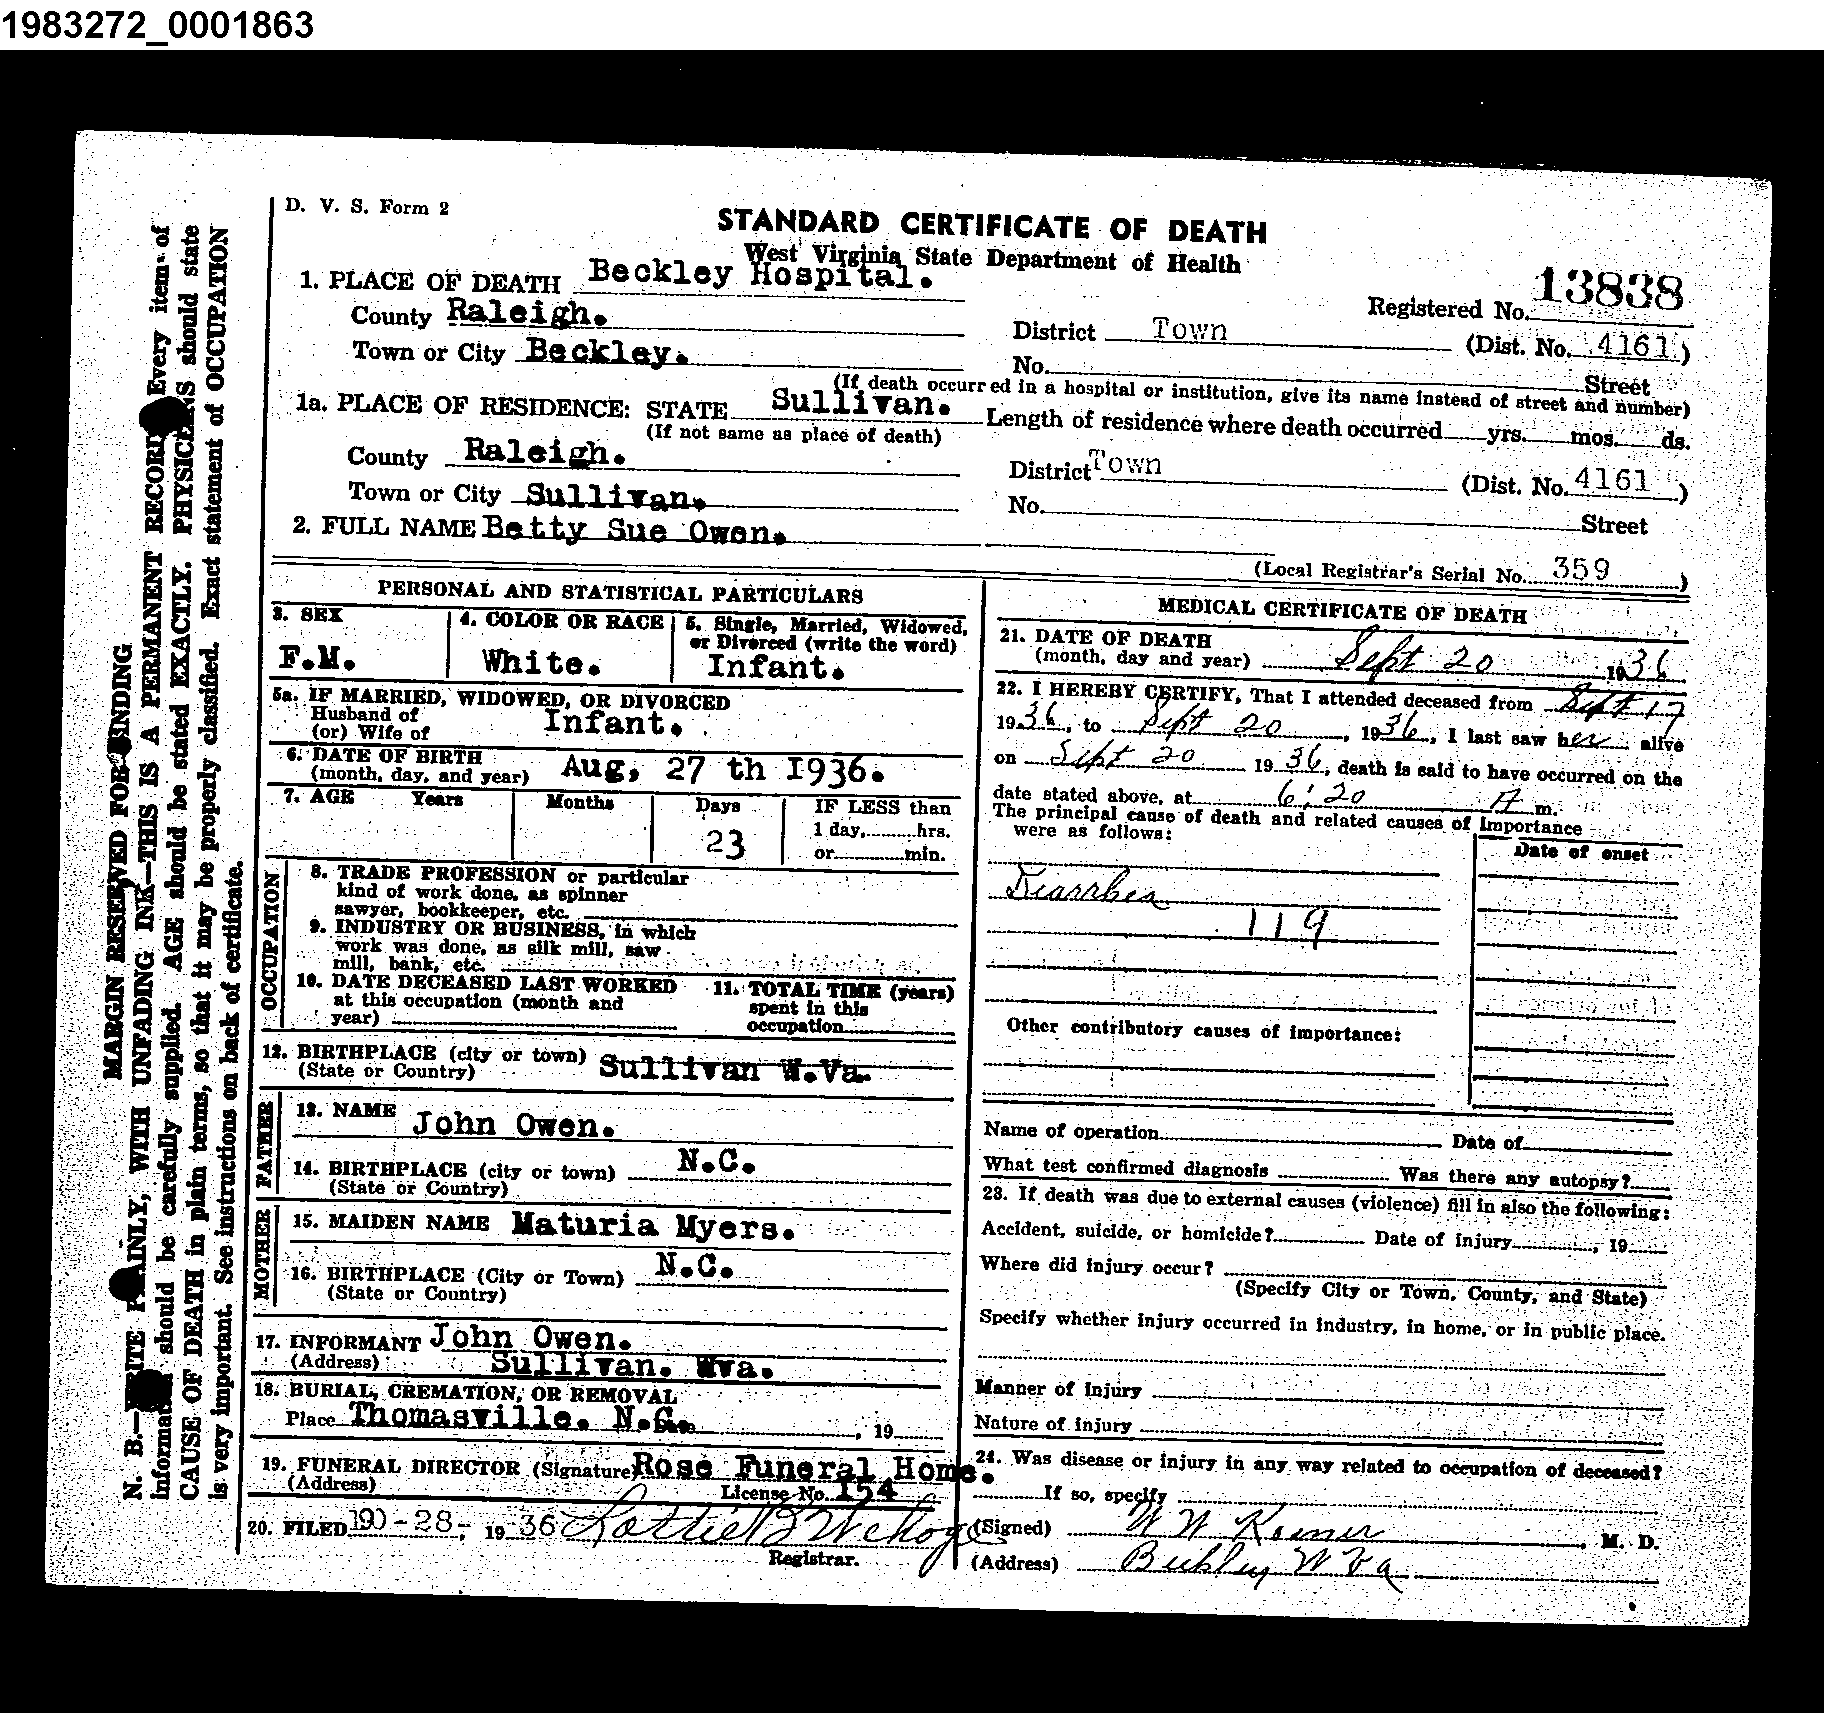 1983272_0001863
D. V. S. Form 2
STANDARD CERTIFICATE OF DEATH
West Virginia State Department of Health
1. PLACE OF DEATH Beckley Hospital.
Registered No. 13838
County Raleigh.
District Town (Dist. No. 4161)
Town or City Beckley.
No. Street
(If death occurred in a hospital or institution, give its name instead of street and number)
1a. PLACE OF RESIDENCE: STATE Sullivan.
(If not same as place of death)
Length of residence where death occurred yrs. mos. ds.
County Raleigh.
District Town (Dist. No. 4161)
Town or City Sullivan.
No. Street
2. FULL NAME Betty Sue Owen.
(Local Registrar's Serial No. 359)
PERSONAL AND STATISTICAL PARTICULARS
3. SEX
F.M.
4. COLOR OR RACE
White.
5. Single, Married, Widowed,
or Divorced (write the word)
Infant.
5a. IF MARRIED, WIDOWED, OR DIVORCED
Husband of
(or) Wife of Infant.
6. DATE OF BIRTH
(month, day, and year) Aug, 27 th 1936.
7. AGE Years Months Days
23
IF LESS than
1 day, hrs.
or min.
OCCUPATION
8. TRADE PROFESSION or particular
kind of work done, as spinner
sawyer, bookkeeper, etc.
9. INDUSTRY OR BUSINESS, in which
work was done, as silk mill, saw
mill, bank, etc.
10. DATE DECEASED LAST WORKED
at this occupation (month and
year)
11. TOTAL TIME (years)
spent in this
occupation
12. BIRTHPLACE (city or town) Sullivan W.Va.
(State or Country)
FATHER
13. NAME John Owen.
14. BIRTHPLACE (city or town) N.C.
(State or Country)
MOTHER
15. MAIDEN NAME Maturia Myers.
16. BIRTHPLACE (City or Town) N.C.
(State or Country)
17. INFORMANT John Owen.
(Address) Sullivan. Wva.
18. BURIAL, CREMATION, OR REMOVAL
Place Thomasville. N.C. , 19
19. FUNERAL DIRECTOR (Signature) Rose Funeral Home.
(Address) License No. 154
20. FILED -28-, 1936 Lottie B
Registrar.
MEDICAL CERTIFICATE OF DEATH
21. DATE OF DEATH
(month, day and year) Sept 20 1936
22. I HEREBY CERTIFY, That I attended deceased from Sept 17
1936, to Sept 20, 1936, I last saw her alive
on Sept 20 1936, death is said to have occurred on the
date stated above, at 6:20 A m.
The principal cause of death and related causes of importance
were as follows:
Date of onset
Diarrhea
119
Other contributory causes of importance:
Name of operation Date of
What test confirmed diagnosis Was there any autopsy?
23. If death was due to external causes (violence) fill in also the following:
Accident, suicide, or homicide? Date of injury , 19
Where did injury occur?
(Specify City or Town, County, and State)
Specify whether injury occurred in industry, in home, or in public place.
Manner of Injury
Nature of injury
24. Was disease or injury in any way related to occupation of deceased?
If so, specify
(Signed) W W M. D.
(Address) Beckley W Va
MARGIN RESERVED FOR BINDING
N. B.—WRITE PLAINLY, WITH UNFADING INK—THIS IS A PERMANENT RECORD. Every item of
information should be carefully supplied. AGE should be stated EXACTLY. PHYSICIANS should state
CAUSE OF DEATH in plain terms, so that it may be properly classified. Exact statement of OCCUPATION
is very important. See instructions on back of certificate.